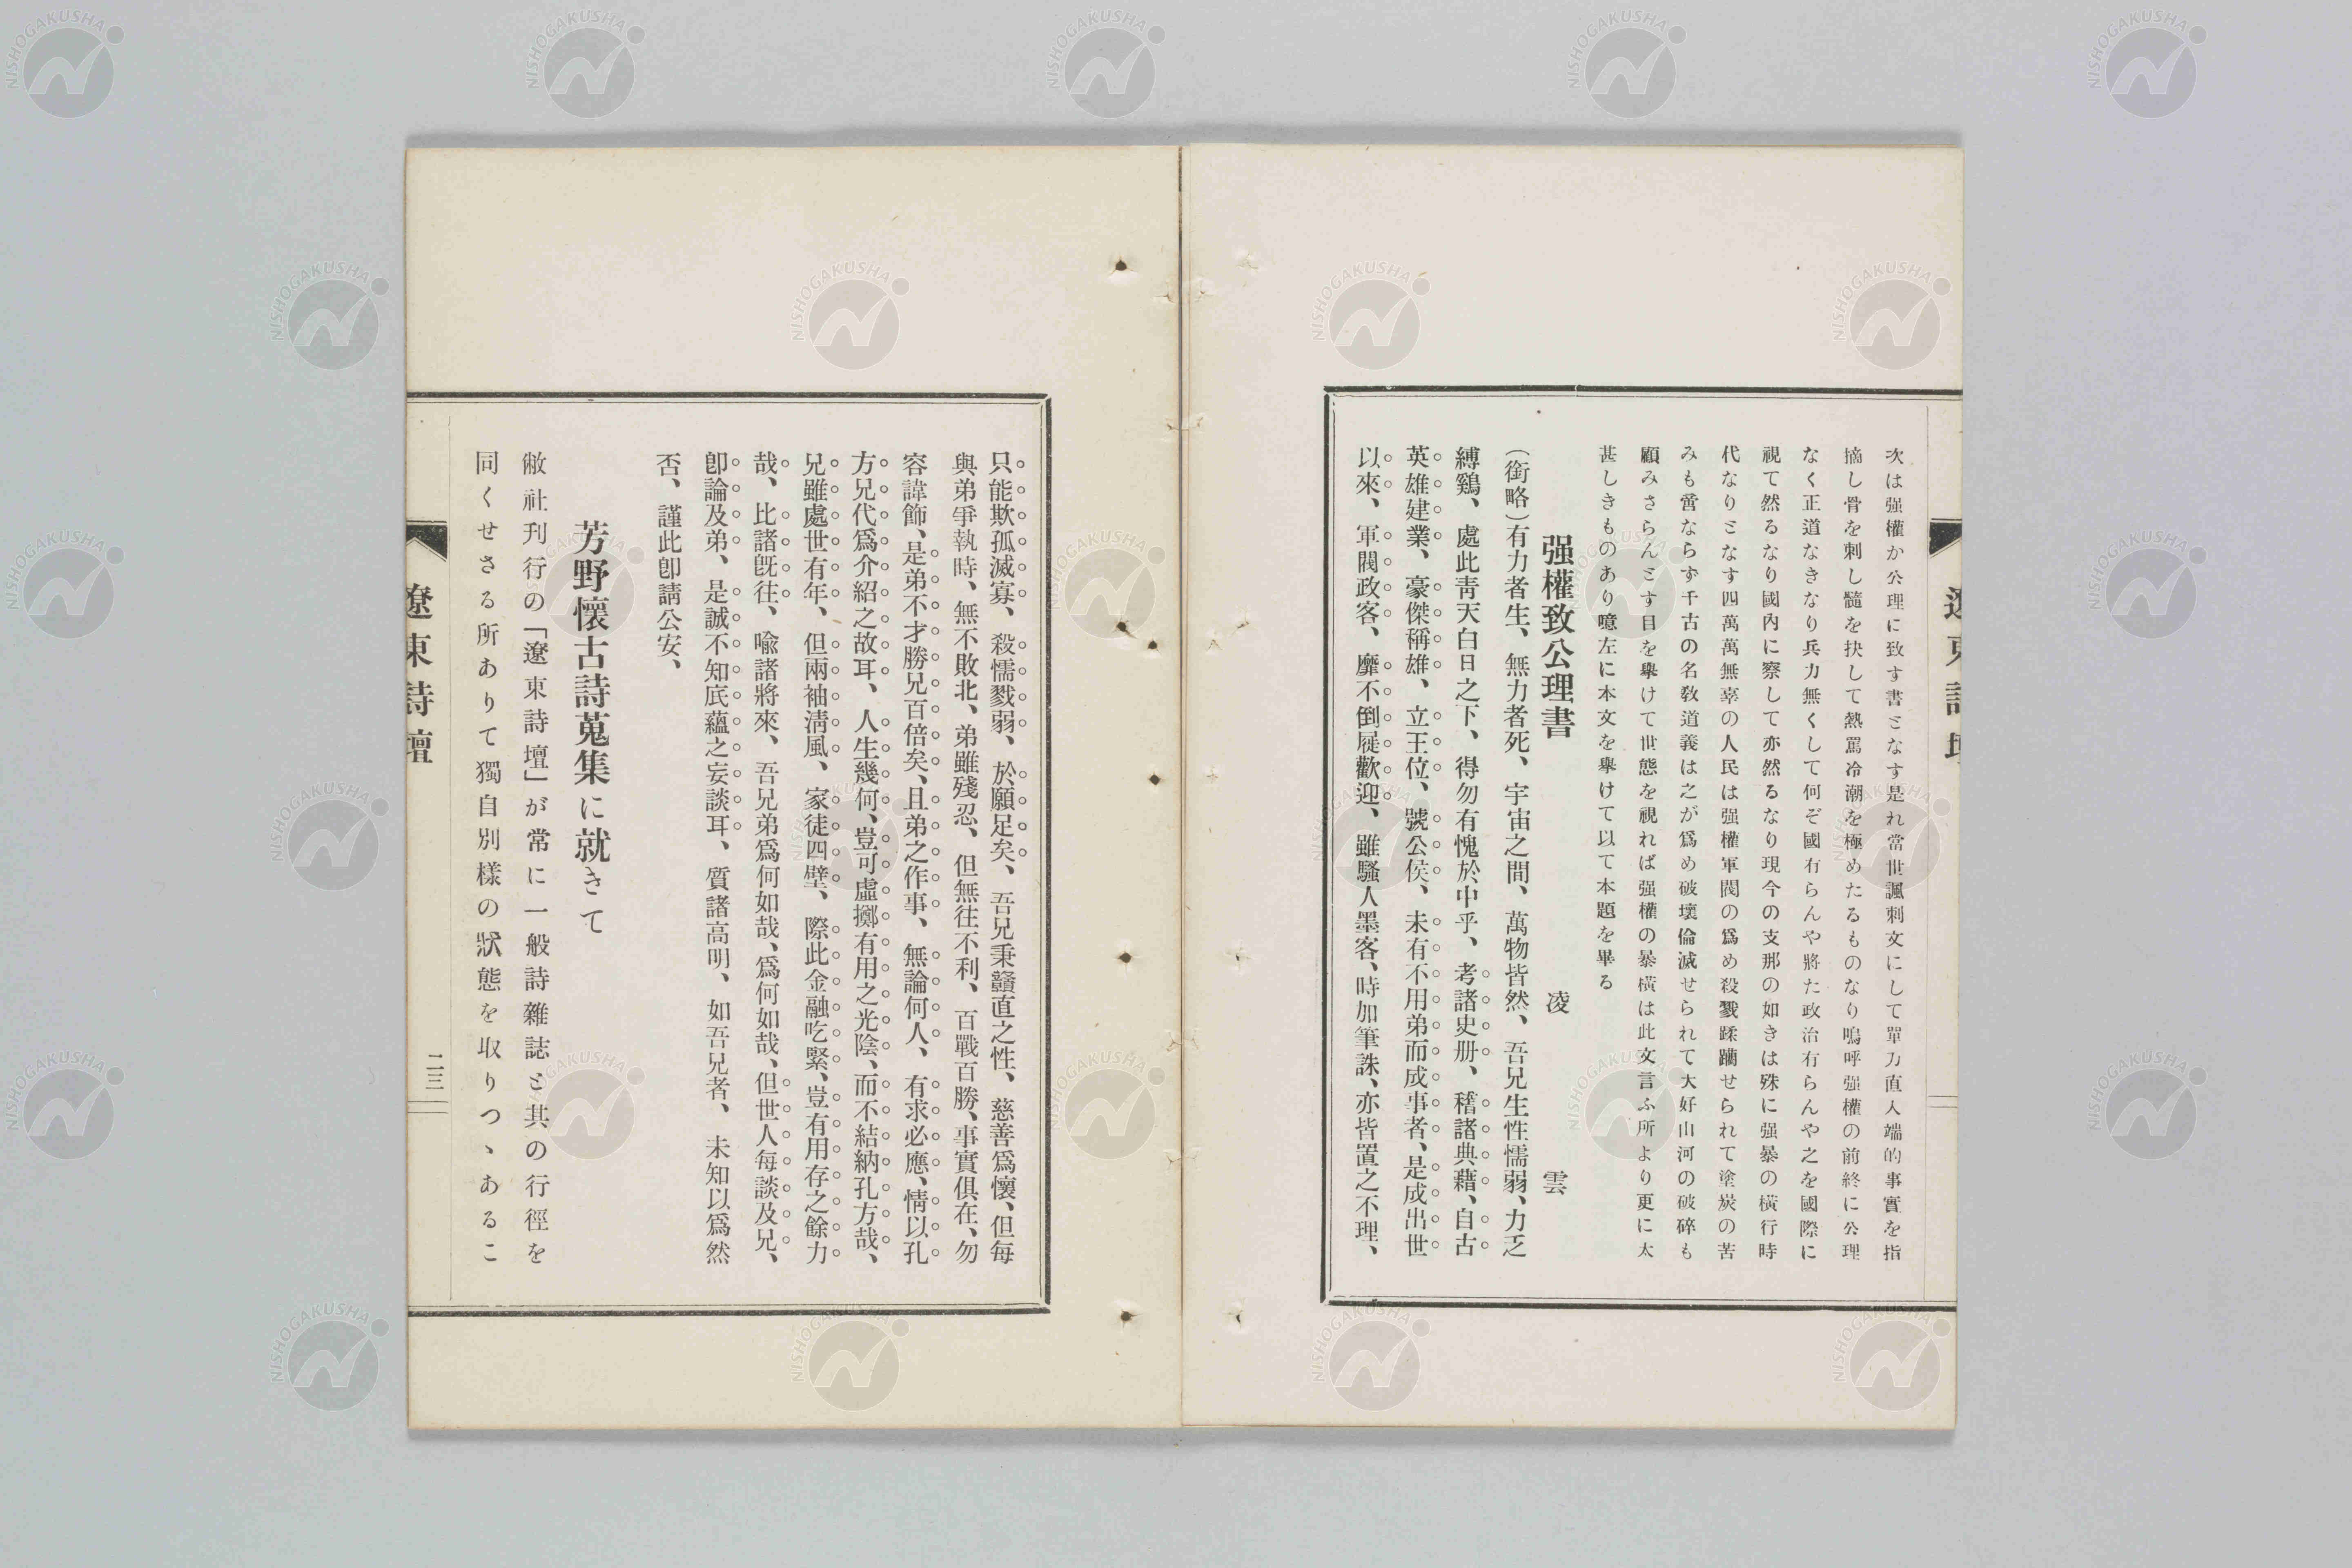 遼東詩壇
次は强權か公理に致す書となす是れ當世諷刺文にして單刀直入端的事實を指
摘し骨を刺し髓を抉して熱罵冷潮を極めたるものなり嗚呼强權の前終に公理
なく正道なきなり兵力無くして何ぞ國有らんや將た政治有らんや之を國際に
視て然るなり國內に察して亦然るなり現今の支那の如きは殊に强暴の橫行時
代なりとなす四萬萬無辜の人民は强權軍閥の爲め殺戮蹂躪せられて塗炭の苦
みも啻ならず千古の名敎道義は之が爲め破壞倫滅せられて大好山河の破碎も
顧みさらんとす目を擧けて世態を視れば强權の暴橫は此文言ふ所より更に太
甚しきものあり噫左に本文を擧けて以て本題を畢る
强權致公理書　凌雲
(銜略)有力者生、無力者死、宇宙之間、萬物皆然、吾兄生性懦弱、力乏
縛鷄、處此靑天白日之下、得勿有愧於中乎、考諸史册、稽諸典藉、自古
英雄建業、豪傑稱雄、立王位、號公侯、未有不用弟而成事者、是成出世
以來、軍閥政客、靡不倒屣歡迎、雖騷人墨客、時加筆誅、亦皆置之不理、
只能欺孤滅寡、殺懦戮弱、於願足矣、吾兄秉贛直之性、慈善爲懷、但每
與弟爭執時、無不敗北、弟雖殘忍、但無往不利、百戰百勝、事實俱在、勿
容諱飾、是弟不才勝兄百倍矣、且弟之作事、無論何人、有求必應、情以孔
方兄代爲介紹之故耳、人生幾何、豈可虛擲有用之光陰、而不結納孔方哉、
兄雖處世有年、但兩袖淸風、家徒四壁、際此金融吃緊、豈有用存之餘力
哉、比諸旣往、喩諸將來、吾兄弟爲何如哉、爲何如哉、但世人每談及兄、
卽論及弟、是誠不知底蘊之妄談耳、質諸高明、如吾兄者、未知以爲然
否、謹此卽請公安、
芳野懷古詩蒐集に就きて
敝社刊行の「遼東詩壇」が常に一般詩雜誌と其の行徑を
同くせさる所ありて獨自別樣の狀態を取りつヽあるこ
遼東詩壇
二三